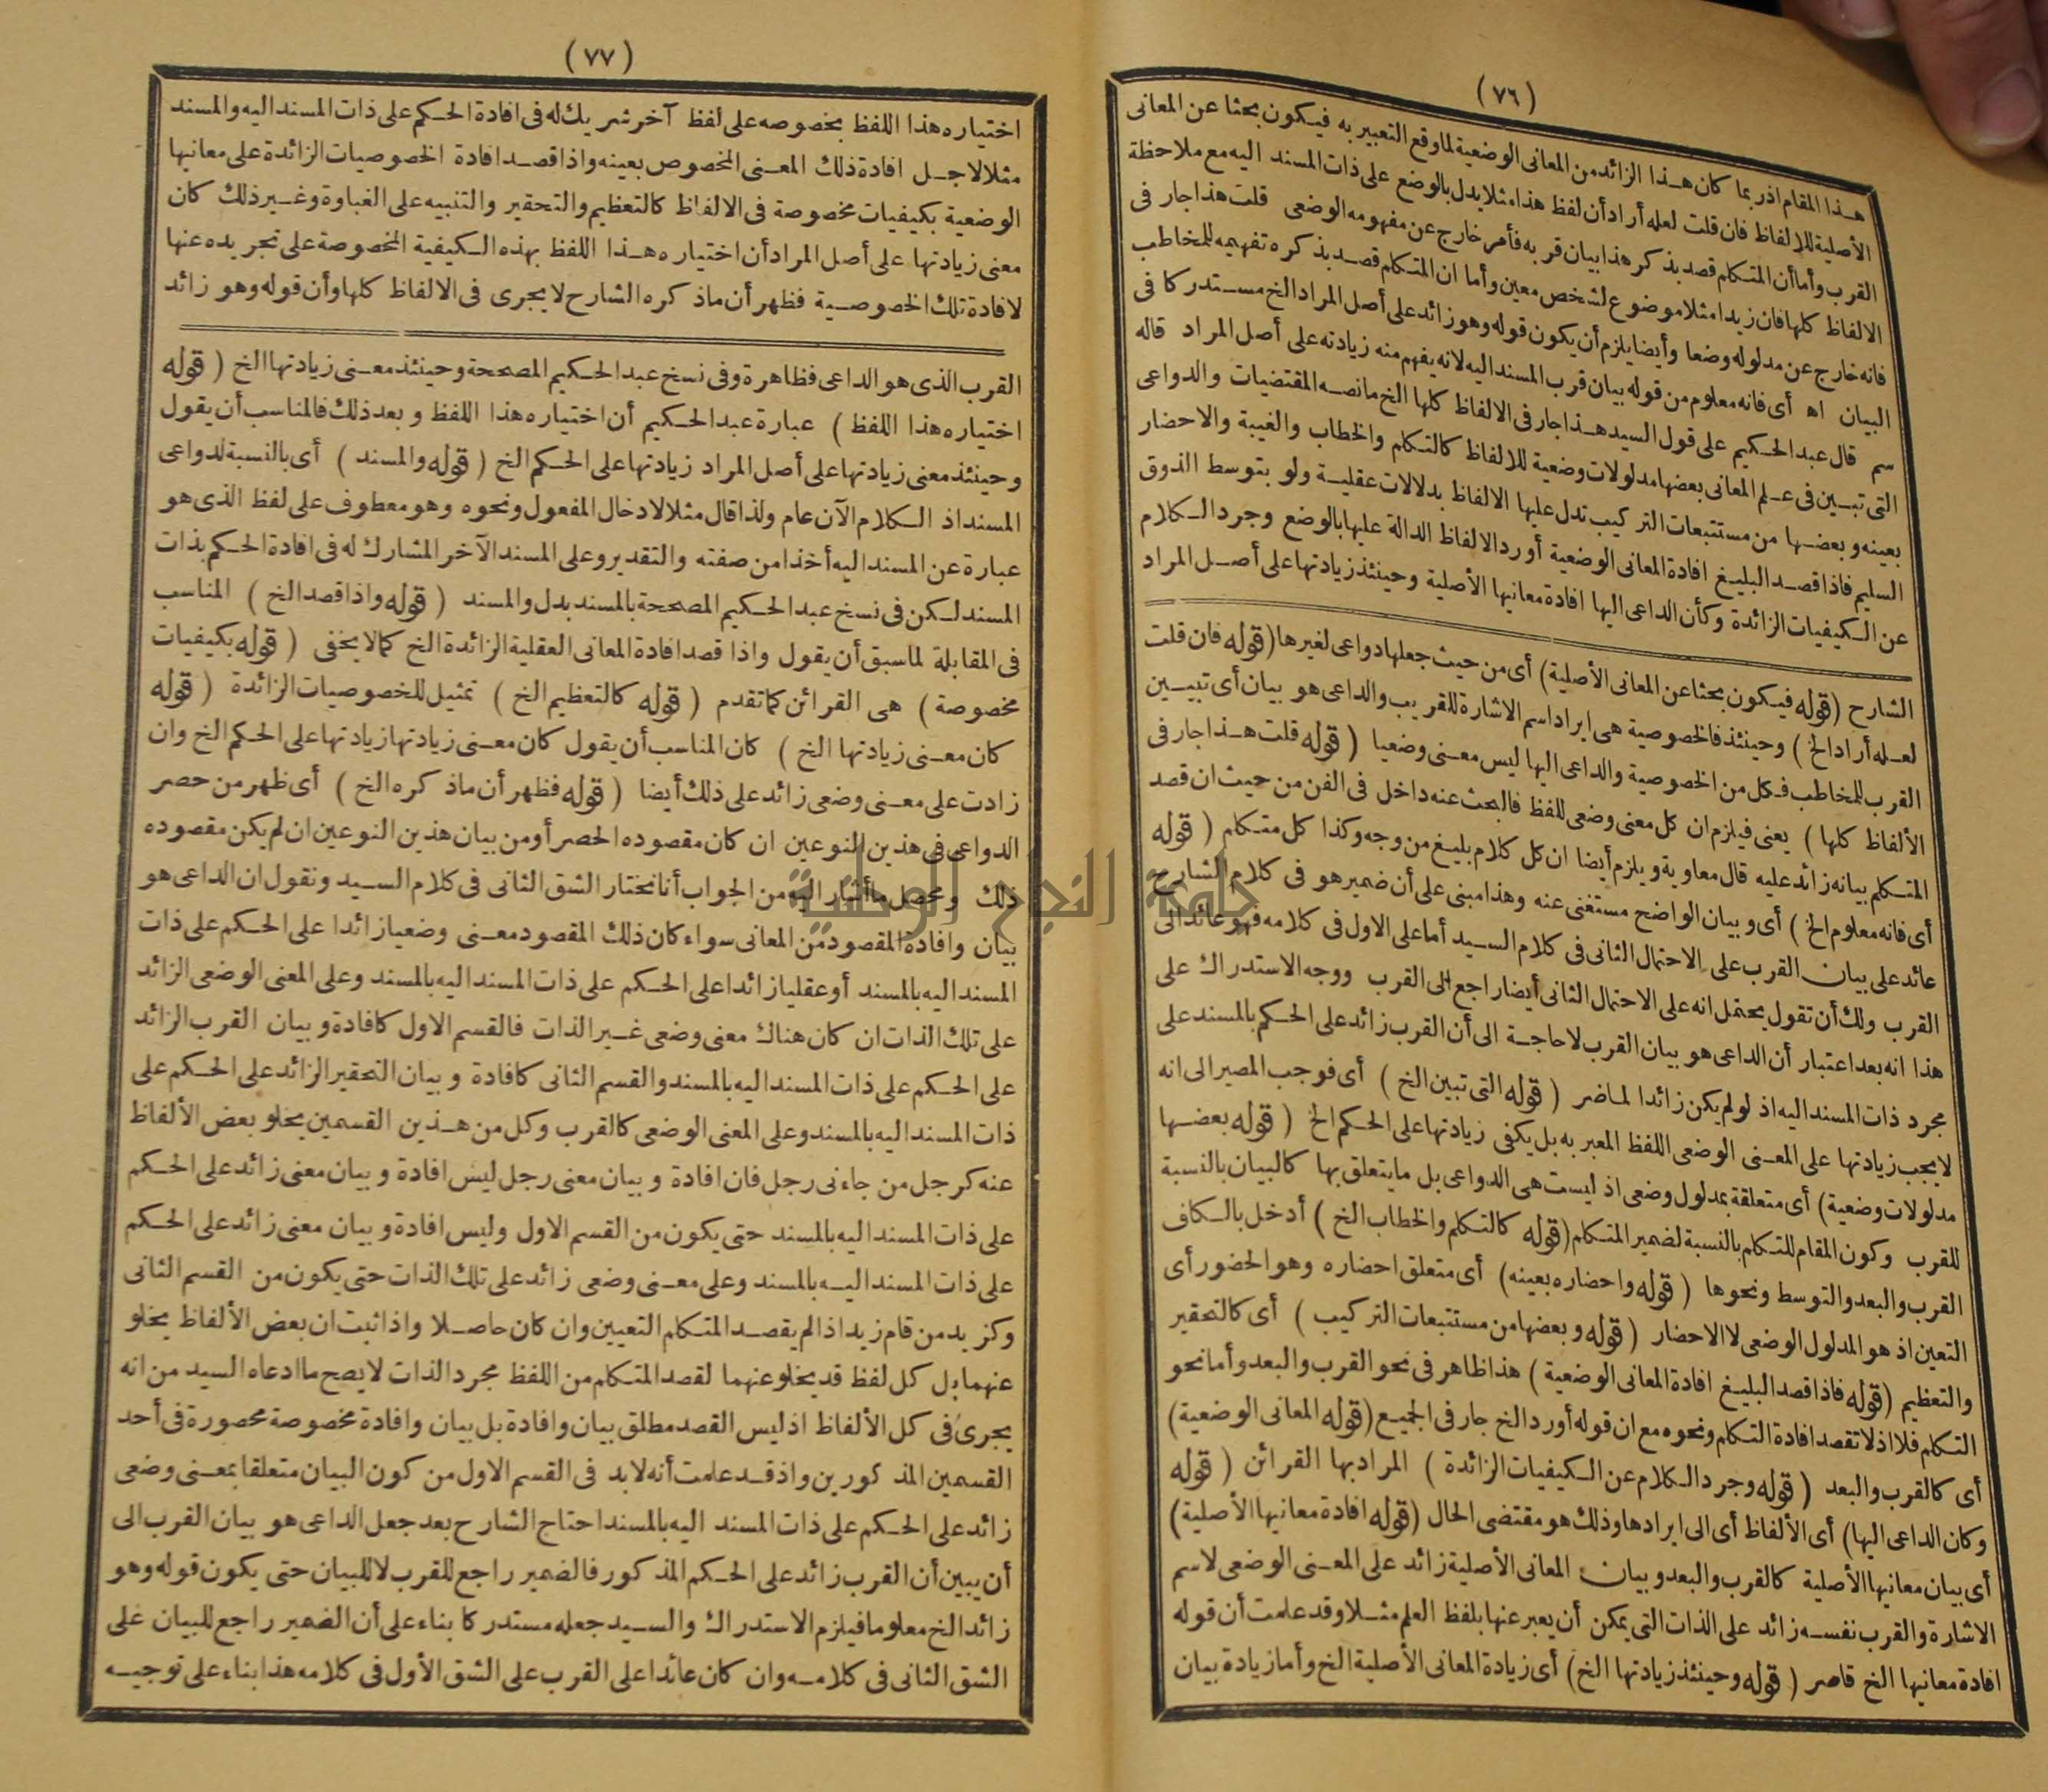 (٧٦)
هذا المقام اذ ربما كان هذا الزائد من المعانى الوضعية لما وقع التعبير به فيكون بحثا عن المعانى
الأصلية للالفاظ فان قلت لعله أراد أن لفظ هذا مثلا يدل بالوضع على ذات المسند اليه مع ملاحظة
القرب وأما أن المتكلم قصد بذكر هذا بيان قربه فأمر خارج عن مفهومه الوضعى قلت هذا جار فى
الالفاظ كلها فان زيدا مثلا موضوع لشخص معين وأما ان المتكلم قصد بذكره تفهيمه للمخاطب
فانه خارج عن مدلوله وضعا وأيضا يلزم أن يكون قوله وهو زائد على أصل المراد الخ مستدركا فى
البيان اه أى فانه معلوم من قوله بيان قرب المسند اليه لانه يفهم منه زيادته على أصل المراد قاله
سم قال عبد الحكيم على قول السيد هذا جار فى الالفاظ كلها الخ مانصه المقتضيات والدواعى
التى تبين فى علم المعانى بعضها مدلولات وضعية للالفاظ كالتكلم والخطاب والغيبة والاحضار
بعينه وبعضها من مستتبعات التركيب تدل عليها الالفاظ بدلالات عقلية ولو بتوسط الذوق
السليم فاذا قصد البليغ افادة المعانى الوضعية أورد الالفاظ الدالة عليها بالوضع وجرد الكلام
عن الكيفيات الزائدة وكأن الداعى اليها افادة معانيها الأصلية وحينئذ زيادتها على أصل المراد
الشارح (قوله فيكون بحثا عن المعانى الأصلية) أى من حيث جعلها دواعى لغيرها (قوله فان قلت
لعله أراد الخ) وحينئذ فالخصوصية هى ايراد اسم الاشارة للقريب والداعى هو بيان أى تبيين
القرب للمخاطب فكل من الخصوصية والداعى اليها ليس معنى وضعيا (قوله قلت هذا جار فى
الألفاظ كلها) يعنى فيلزم ان كل معنى وضعى للفظ فالبحث عنه داخل فى الفن من حيث ان قصد
المتكلم بيانه زائد عليه قال معاوية ويلزم أيضا ان كل كلام بليغ من وجه وكذا كل متكلم (قوله
أى فانه معلوم الخ) أى وبيان الواضح مستغنى عنه وهذا مبنى على أن ضمير هو فى كلام الشارح
عائد على بيان القرب على الاحتمال الثانى فى كلام السيد أما على الاول فى كلامه فهو عائد الى
القرب ولك أن تقول يحتمل انه على الاحتمال الثانى أيضا راجع الى القرب ووجه الاستدراك على
هذا انه بعد اعتبار أن الداعى هو بيان القرب لاحاجة الى أن القرب زائد على الحكم بالمسند على
مجرد ذات المسند اليه اذ لو لم يكن زائدا لماضر (قوله التى تبين الخ) أى فوجب المصير الى انه
لا يجب زيادتها على المعنى الوضعى اللفظ المعبر به بل يكفى زيادتها على الحكم الخ (قوله بعضها
مدلولات وضعية) أى متعلقة بمدلول وضعى اذ ليست هى الدواعى بل ما يتعلق بها كالبيان بالنسبة
للقرب وكون المقام للتكلم بالنسبة لضمير المتكلم (قوله كالتكلم والخطاب الخ) أدخل بالكاف
القرب والبعد والتوسط ونحوها (قوله واحضاره بعينه) أى متعلق احضاره وهو الحضور أى
التعين اذ هو المدلول الوضعى لا الاحضار (قوله وبعضها من مستتبعات التركيب) أى كالتحقير
والتعظيم (قوله فاذا قصد البليغ افادة المعانى الوضعية) هذا ظاهر فى نحو القرب والبعد وأما نحو
التكلم فلا اذ لا تقصد افادة التكلم ونحوه مع ان قوله أورد الخ جار فى الجميع (قوله المعانى الوضعية)
أى كالقرب والبعد (قوله وجرد الكلام عن الكيفيات الزائدة) المراد بها القرائن (قوله
وكان الداعى اليها) أى الألفاظ أى الى ايرادها وذلك هو مقتضى الحال (قوله افادة معانيها الأصلية)
أى بيان معانيها الأصلية كالقرب والبعد وبيان المعانى الأصلية زائد على المعنى الوضعى لاسم
الاشارة والقرب نفسه زائد على الذات التى يمكن أن يعبر عنها بلفظ العلم مثلا وقد علمت أن قوله
افادة معانيها الخ قاصر (قوله وحينئذ زيادتها الخ) أى زيادة المعانى الأصلية الخ وأما زيادة بيان
(٧٧)
اختياره هذا اللفظ بخصوصه على لفظ آخر شريك له فى افادة الحكم على ذات المسند اليه والمسند
مثلا لاجل افادة ذلك المعنى المخصوص بعينه واذا قصد افادة الخصوصيات الزائدة على معانيها
الوضعية بكيفيات مخصوصة فى الالفاظ كالتعظيم والتحقير والتنبيه على الغباوة وغير ذلك كان
معنى زيادتها على أصل المراد أن اختياره هذا اللفظ بهذه الكيفية المخصوصة على تجريده عنها
لافادة تلك الخصوصية فظهر أن ماذكره الشارح لا يجرى فى الالفاظ كلها وأن قوله وهو زائد
القرب الذى هو الداعى فظاهرة وفى نسخ عبد الحكيم المصححة وحينئذ معنى زيادتها الخ (قوله
اختياره هذا اللفظ) عبارة عبد الحكيم أن اختياره هذا اللفظ وبعد ذلك فالمناسب أن يقول
وحينئذ معنى زيادتها على أصل المراد زيادتها على الحكم الخ (قوله والمسند) أى بالنسبة لدواعى
المسند اذ الكلام الآن عام ولذا قال مثلا لادخال المفعول ونحوه وهو معطوف على لفظ الذى هو
عبارة عن المسند اليه أخذا من صفته والتقدير وعلى المسند الآخر المشارك له فى افادة الحكم بذات
المسند لكن فى نسخ عبد الحكيم المصححة بالمسند بدل والمسند (قوله واذا قصد الخ) المناسب
فى المقابلة لماسبق أن يقول واذا قصد افادة المعانى العقلية الزائدة الخ كما لا يخفى (قوله بكيفيات
مخصوصة) هى القرائن كما تقدم (قوله كالتعظيم الخ) تمثيل للخصوصيات الزائدة (قوله
كان معنى زيادتها الخ) كان المناسب أن يقول كان معنى زيادتها زيادتها على الحكم الخ وان
زادت على معنى وضعى زائد على ذلك أيضا (قوله فظهر أن ماذكره الخ) أى ظهر من حصر
الدواعى فى هذين النوعين ان كان مقصوده الحصر أو من بيان هذين النوعين ان لم يكن مقصوده
ذلك ومحصل ما أشار اليه من الجواب أنا نختار الشق الثانى فى كلام السيد ونقول ان الداعى هو
بيان وافادة المقصود من المعانى سواء كان ذلك المقصود معنى وضعيا زائدا على الحكم على ذات
المسند اليه بالمسند أو عقليا زائدا على الحكم على ذات المسند اليه بالمسند وعلى المعنى الوضعى الزائد
على تلك الذات ان كان هناك معنى وضعى غير الذات فالقسم الاول كافادة وبيان القرب الزائد
على الحكم على ذات المسند اليه بالمسند والقسم الثانى كافادة وبيان التحقير الزائد على الحكم على
ذات المسند اليه بالمسند وعلى المعنى الوضعى كالقرب وكل من هذين القسمين يخلو بعض الألفاظ
عنه كرجل من جاءنى رجل فان افادة وبيان معنى رجل ليس افادة وبيان معنى زائد على الحكم
على ذات المسند اليه بالمسند حتى يكون من القسم الاول وليس افادة وبيان معنى زائد على الحكم
على ذات المسند اليه بالمسند وعلى معنى وضعى زائد على تلك الذات حتى يكون من القسم الثانى
وكزيد من قام زيد اذ لم يقصد المتكلم التعيين وان كان حاصلا واذا ثبت ان بعض الألفاظ يخلو
عنهما بل كل لفظ قد يخلو عنهما لقصد المتكلم من اللفظ مجرد الذات لا يصح ما ادعاه السيد من انه
يجرى فى كل الألفاظ اذ ليس القصد مطلق بيان وافادة بل بيان وافادة مخصوصة محصورة فى أحد
القسمين المذكورين واذ قد علمت أنه لابد فى القسم الاول من كون البيان متعلقا بمعنى وضعى
زائد على الحكم على ذات المسند اليه بالمسند احتاج الشارح بعد جعل الداعى هو بيان القرب الى
أن يبين أن القرب زائد على الحكم المذكور فالضمير راجع للقرب لا للبيان حتى يكون قوله وهو
زائد الخ معلوما فيلزم الاستدراك والسيد جعله مستدركا بناء على أن الضمير راجع للبيان على
الشق الثانى فى كلامه وان كان عائدا على القرب على الشق الأول فى كلامه هذا بناء على توجيه
جامعة النجاح الوطنية